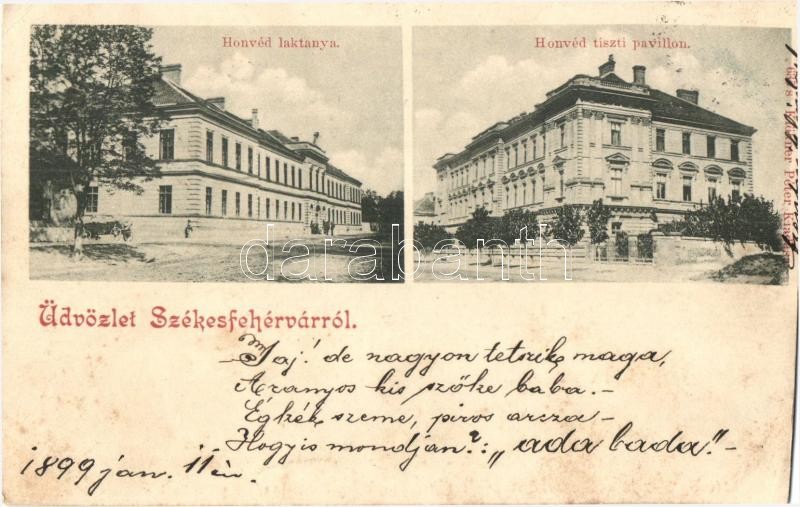 Honvéd laktanya.
Honvéd tiszti pavillon.
darabanth
Üdvözlet Székesfehérvárról.
Jaj! de nagyon tetszik maga,
Aranyos kis szőke baba.-
Égkék szeme, piros arcza-
Hogyis mondjan?: "ada bada".-
1899 jan. 11én.
Péter